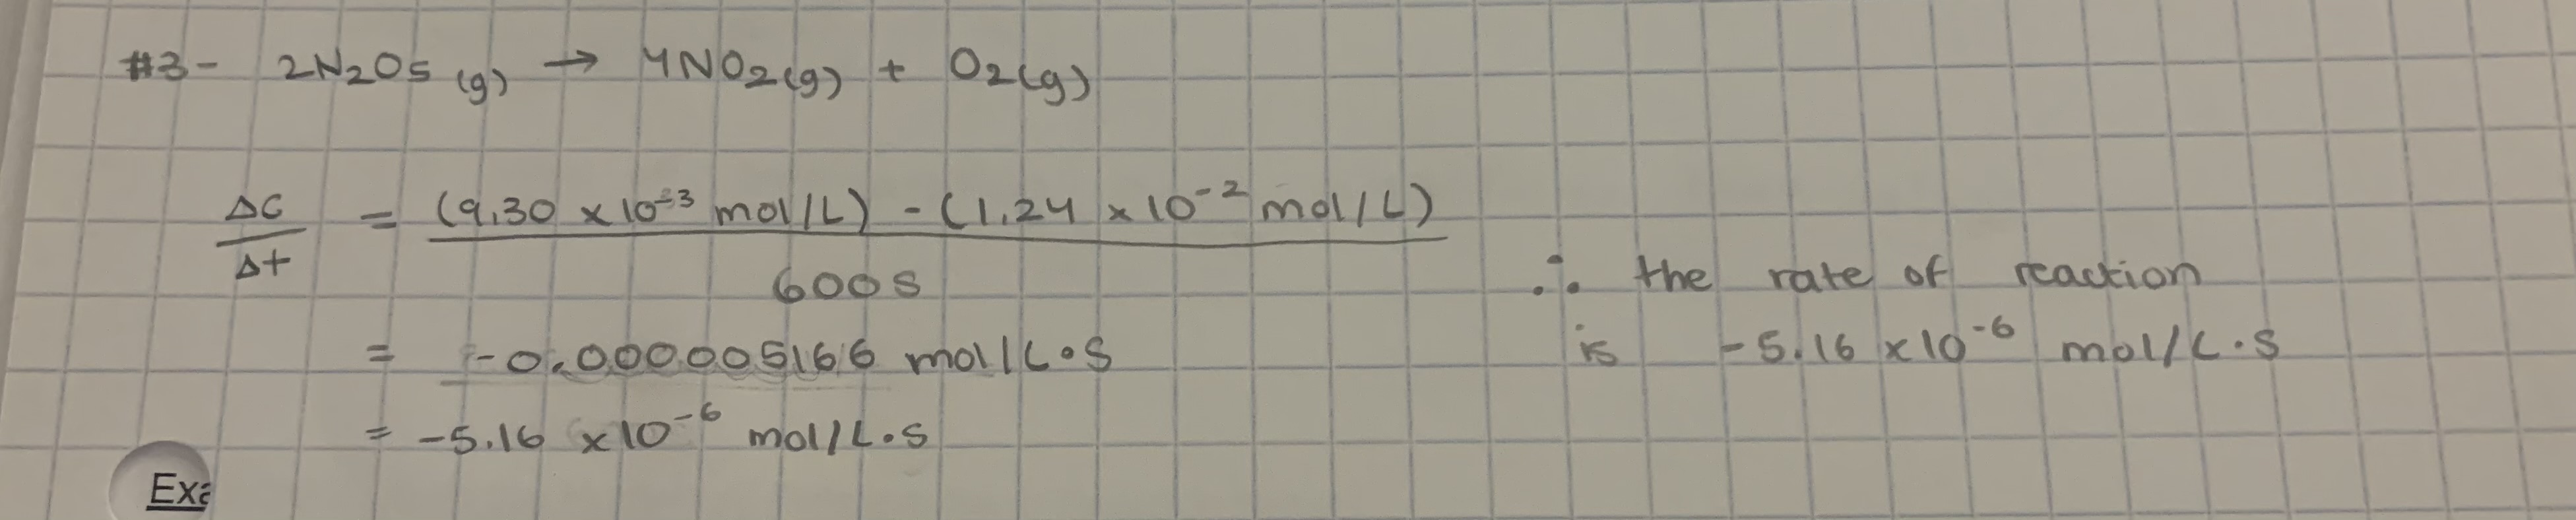 #3- 2N₂O₅ (g) → 4NO₂(g) + O₂(g)
ΔC/Δt = (9.30 x 10⁻³ mol/L) - (1.24 x 10⁻² mol/L)
600s
= -0.000005166 mol/L•S
= -5.16 x10⁻⁶ mol/L.s
∴ the rate of reaction
is -5.16 x10⁻⁶ mol/L.s
Exa